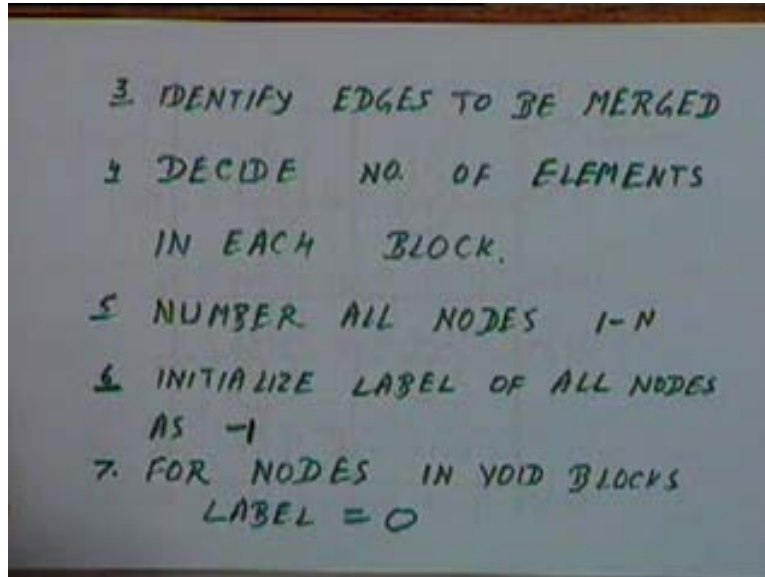 3 IDENTIFY EDGES TO BE MERGED
4 DECIDE NO. OF ELEMENTS
IN EACH BLOCK.
5 NUMBER ALL NODES 1-N
6 INITIALIZE LABEL OF ALL NODES
AS -1
7. FOR NODES IN VOID BLOCKS
LABEL = 0